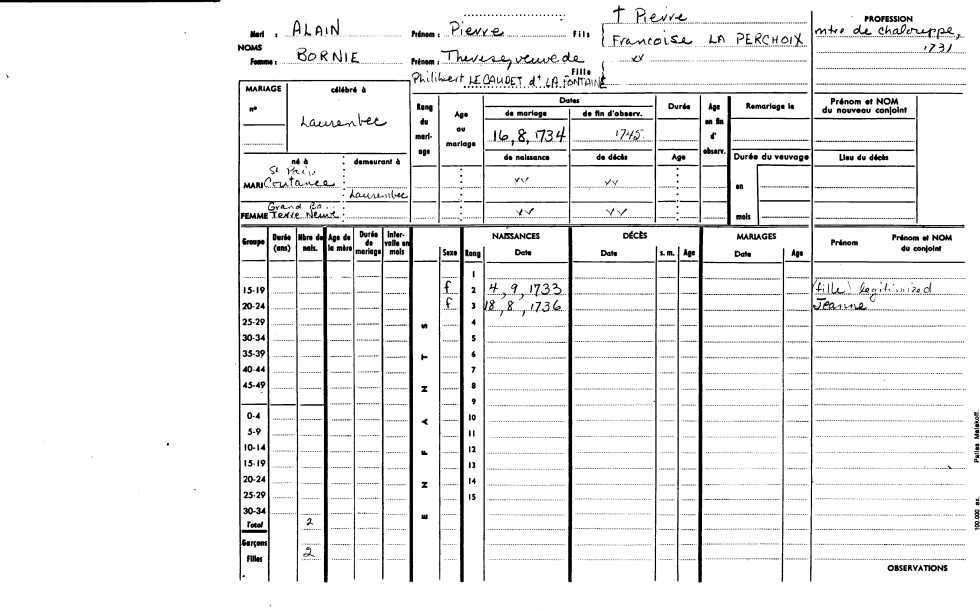 † Pierre
PROFESSION
Mari : ALAIN Prénom : Pierre Fils Francoise LA PERCHOIX mtre de chalouppe,
1731
NOMS
Femme : BORNIE Prénom : Therese, veuve de Fille xx
Philibert LE CAUDET dt LA FONTAINE
MARIAGE célébré à
n° Laurenbec
Rang du mariage
Age au mariage
Dates
de mariage de fin d'observ.
16,8,1734 1745.
de naissance de décès
xx xx
xx xx
Durée
Age
Age en fin d' observ.
Remariage le
Durée du veuvage
en
mois
Prénom et NOM
du nouveau conjoint
Lieu du décès
né à demeurant à
MARI Coutance Laurenbec
FEMME Grand Ba...
Terre Neuve
Groupe Durée (ans) Nbre de nais. Age de la mère Durée de mariage Intervalle en mois
ENFANTS
NAISSANCES DÉCÈS MARIAGES
Sexe Rang Date Date s. m. Age Date Age Prénom Prénom et NOM du conjoint
1
15-19 f 2 4,9,1733 (fille) legitimized
20-24 f 3 18,8,1736 Jeanne
25-29 4
30-34 5
35-39 6
40-44 7
45-49 8
9
0-4 10
5-9 11
10-14 12
15-19 13
20-24 14
25-29 15
30-34
Total 2
Garçons
Filles 2
OBSERVATIONS
100 000 ex.